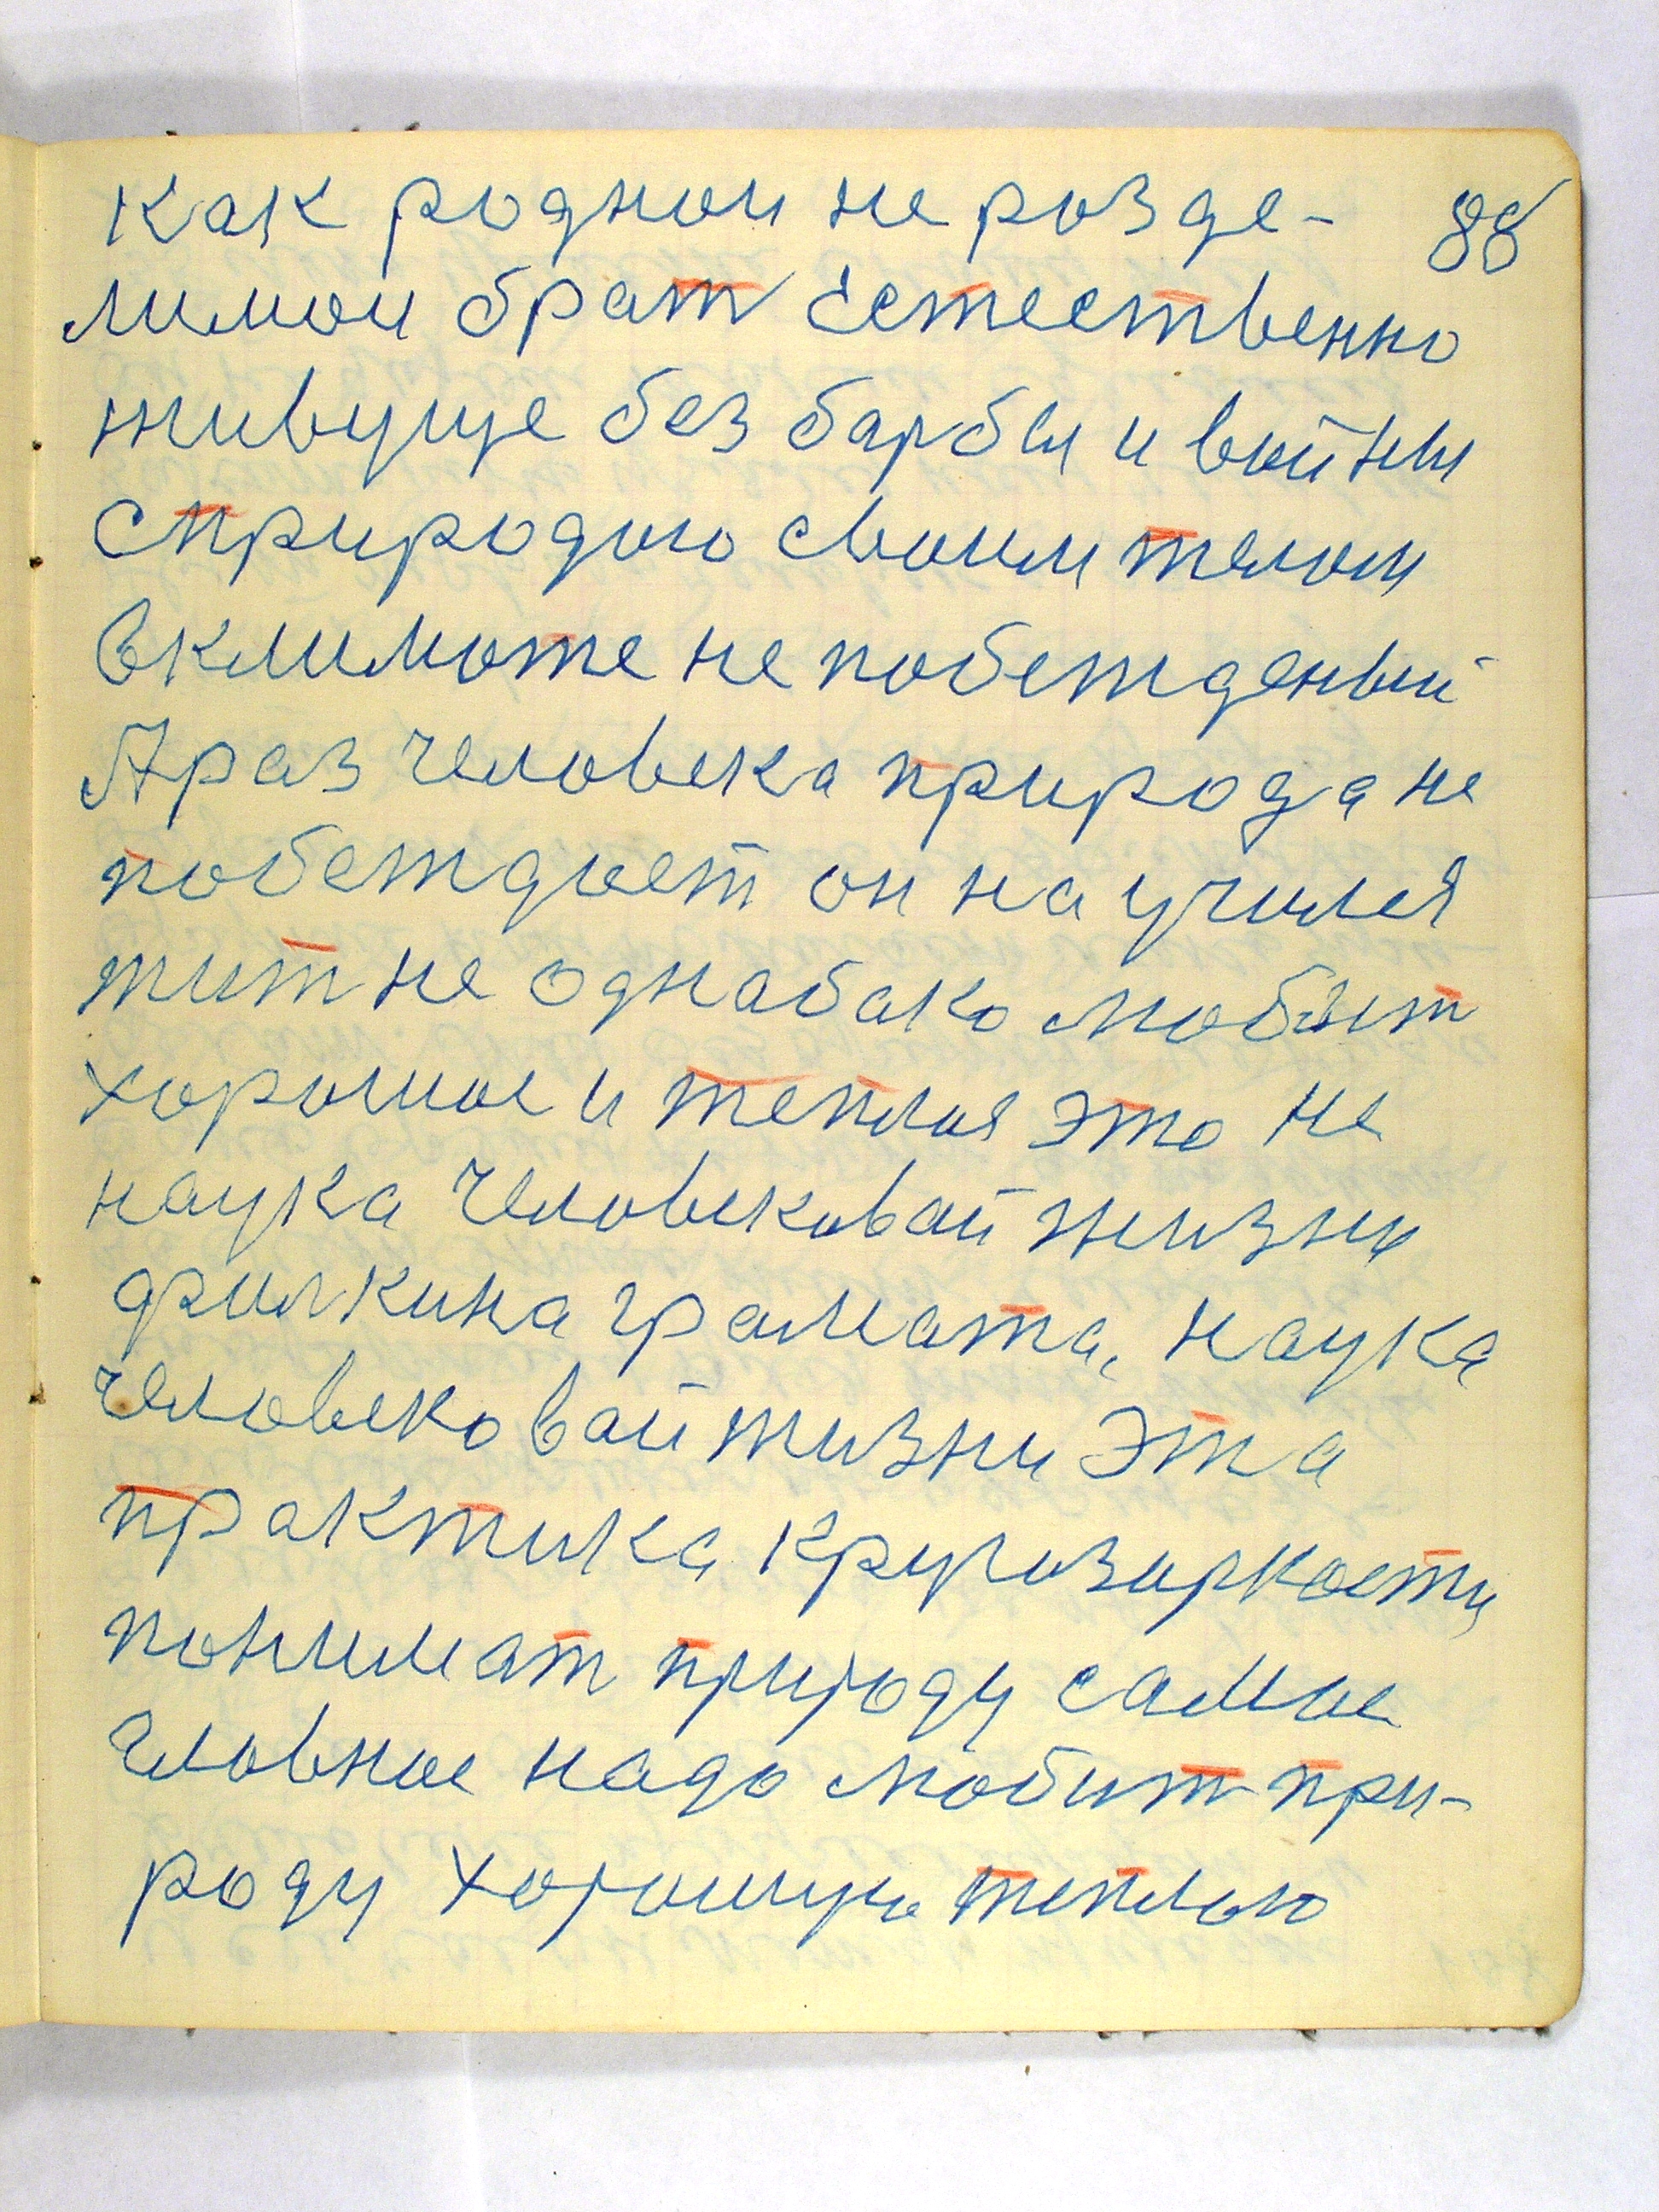 Как роднои не розде- 88
лимои брат Естественно
живуще без барбы и войны
сприродою своим телом
вклимоте не побежденый
А раз человека природа не
побеждает он научился
жит не однабако любит
хорошое и теплоя это не
наука Человековай жизни
филкина грамата, наука
человековай жизни Эта
практика кругозоркости
понимат природу самое
главное надо любит при-
роду хорошую теплою